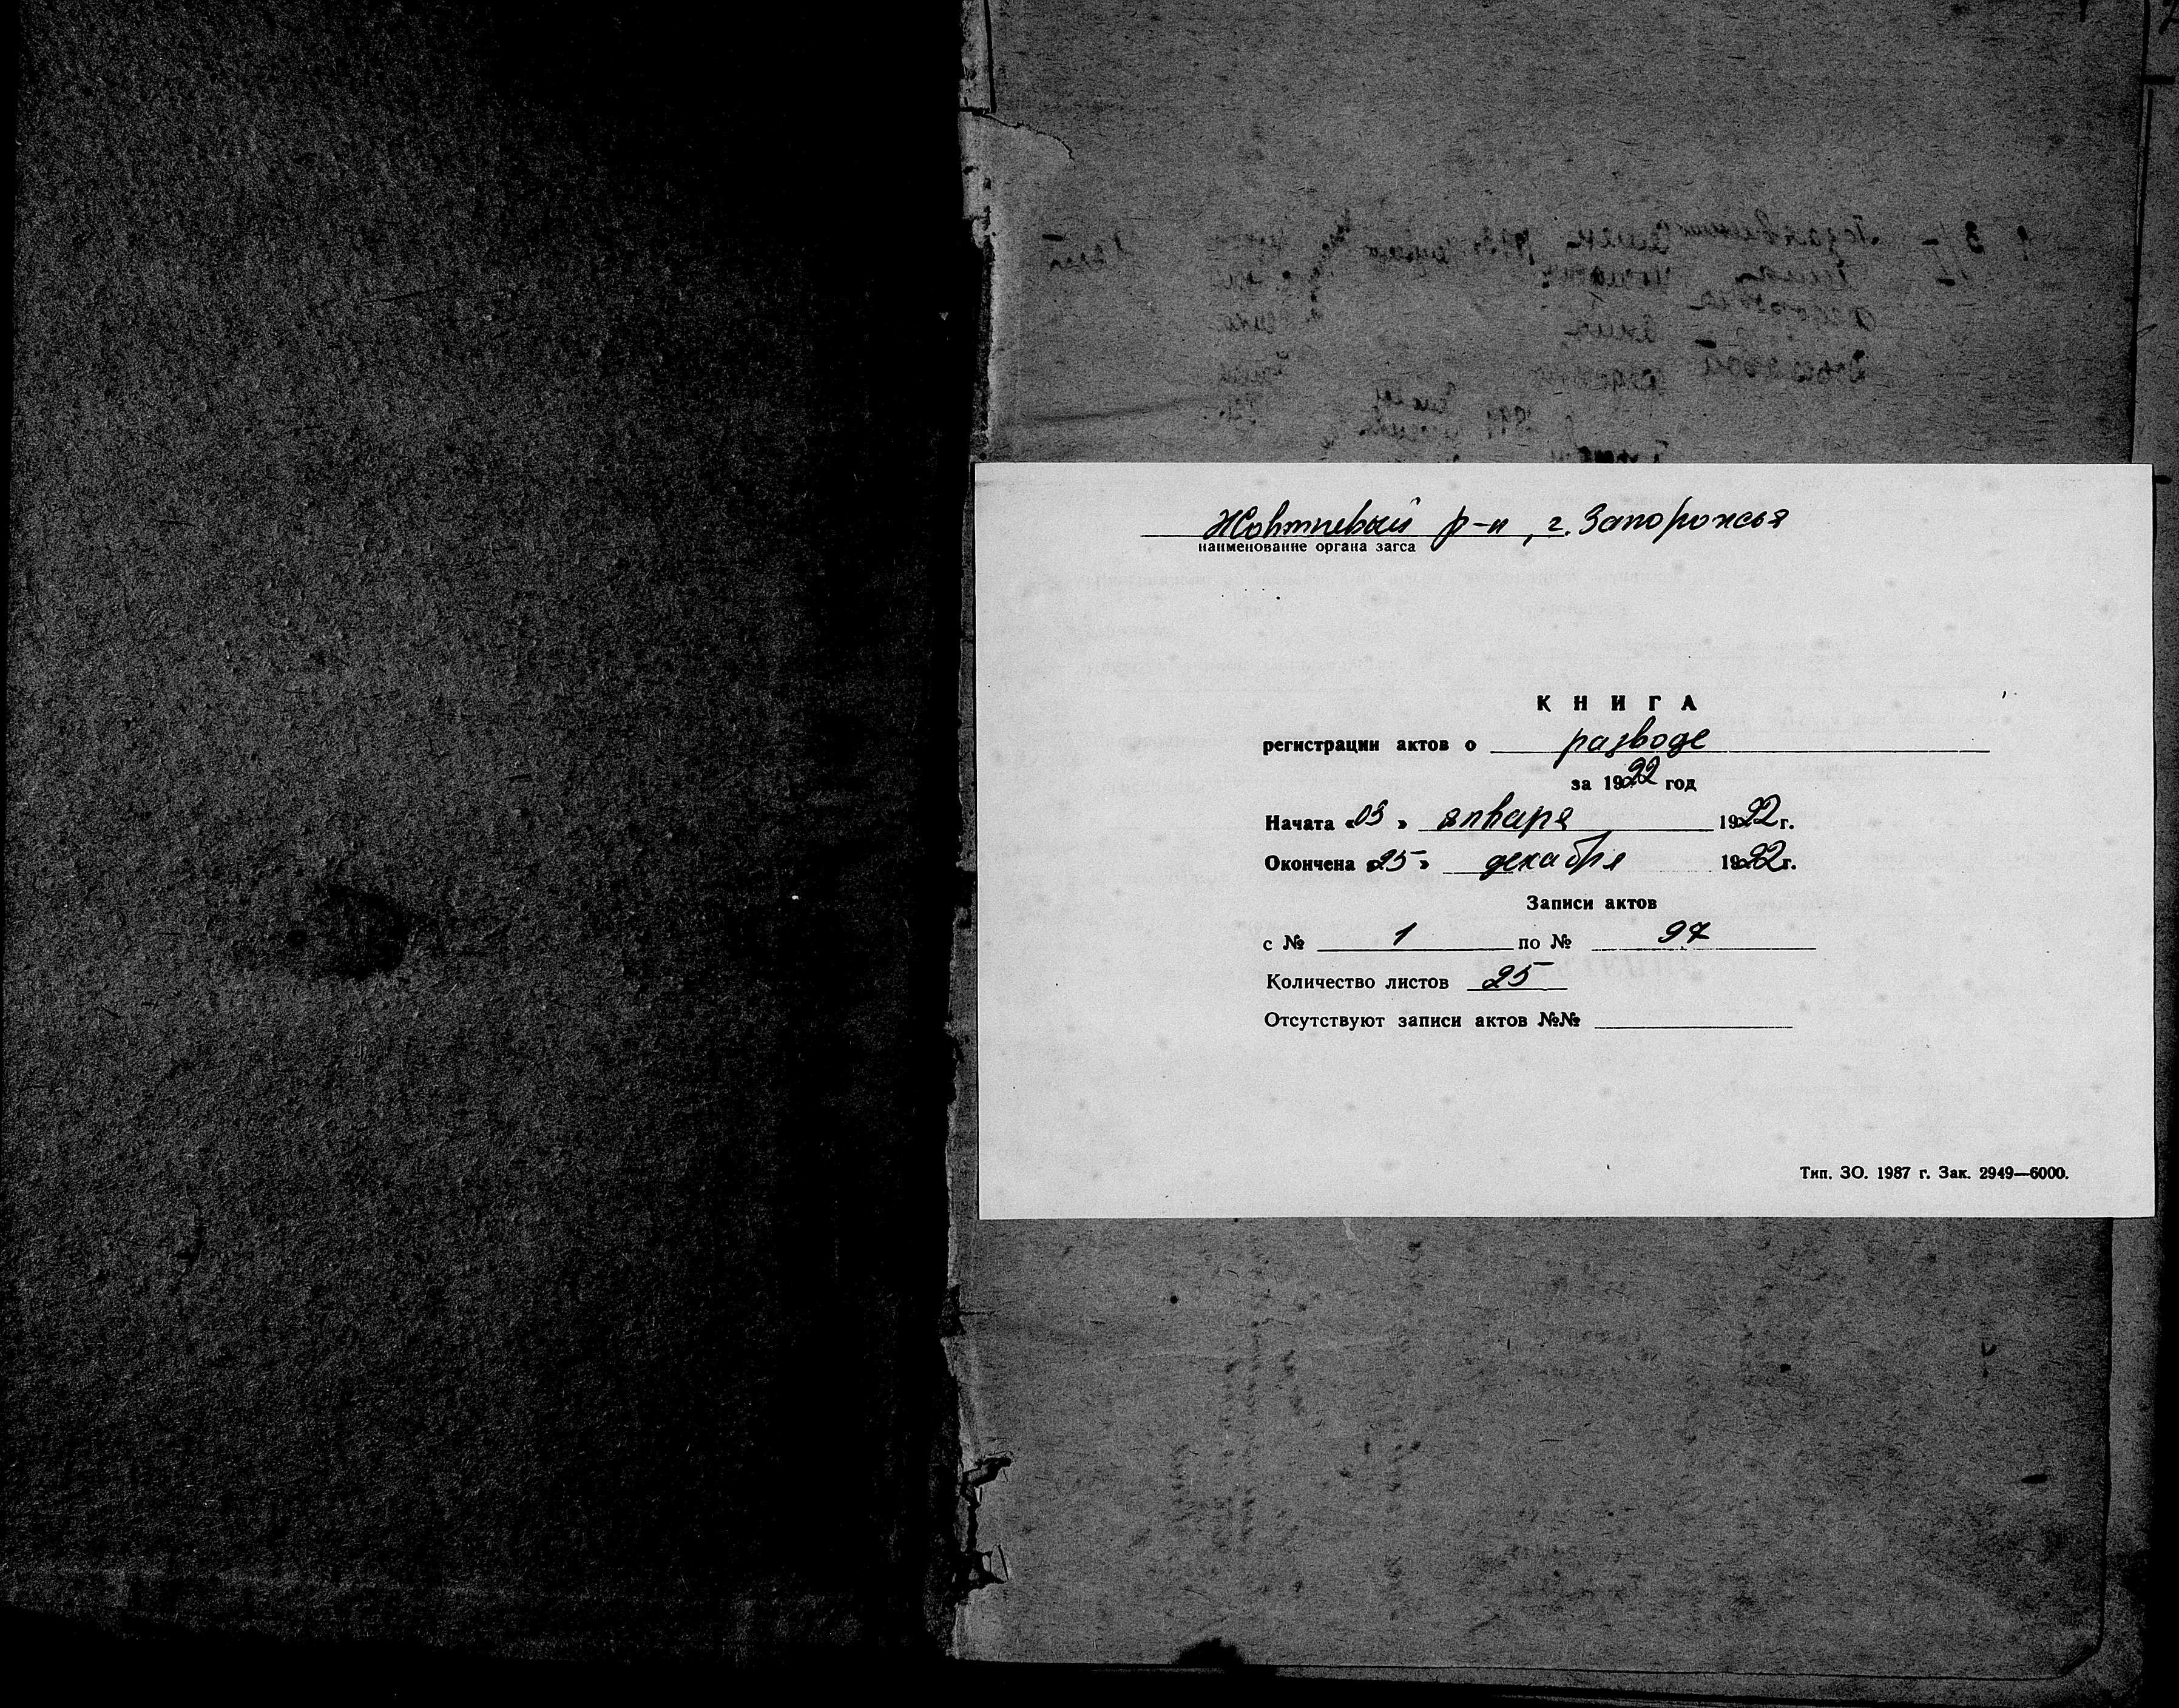 Жовтневый р-н, г. Запорожья
наименование органа загса
КНИГА
регистрации актов о разводе
за 1922 год
Начата «03» января 1922 г.
Окончена «25» декабря 1922 г.
Записи актов
с № 1 по № 97
Количество листов 25
Отсутствуют записи актов №№
Тип. ЗО. 1987 г. Зак. 2949—6000.